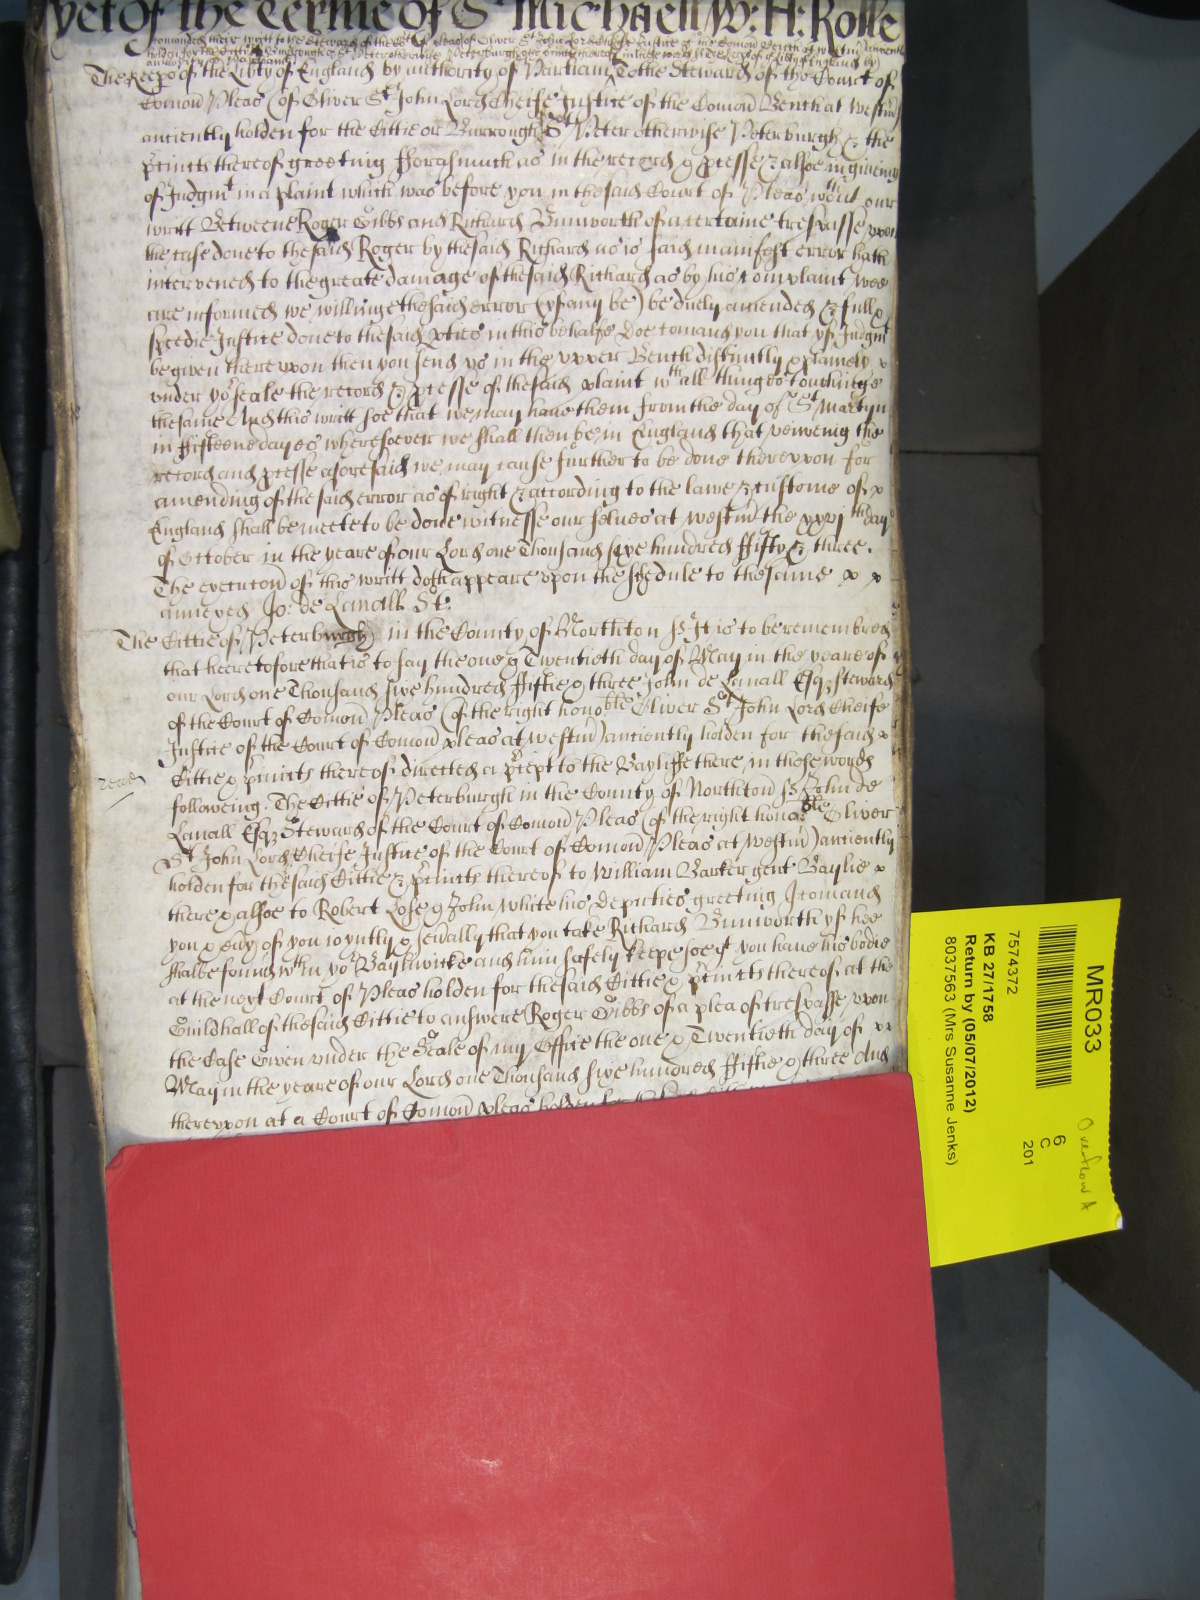 yet of the Terme of St Michaell W: H: Rolle
comanded their writt to the Steward of the Cot of pleas of Oliver St John Lord Cheife Justice of the Comon Bench at Westm anciently
holden for the Cittie
authority of Parliam
The Keeps of the Libty of England by authority of Parliam To the Steward of the Court of
Comon Pleas (of Oliver St John Lord Cheife Justice of the Comon Bench at Westm)
anciently holden for the Cittie or Burrough of St Peter otherwise Peterburgh & the
pcincts thereof greeting fforasmuch as in the record & pcesse & alsoe in giveing
of Judgmt in a plaint which was before you in the said Court of Pleas wthout our
writt Betweene Roger Gibbs and Richard Bunworth of a certaine trespasse vpon
the case done to the said Roger by the said Richard as is said manifest error hath
intervened to the greate damage of the said Richard as by his complaint wee
are informed we willinge the said error (yf any be) be duely amended & full &
speedie Justice done to the said pties in this behalfe Doe comand you that yf Judgmt
be given therevpon then you send vs in the vpper Bench distinctly & plainely x
vnder yor seale the record & pcesse of the said plaint wth all thinges touchinge
the same And this writt soe that we may have them from the day of St Martyn
in ffifteene dayes wheresoever we shall then be in England that veiweing the
record and pcesse aforesaid we may cause further to be done therevpon for
amending of the said error as of right & according to the lawe & custome of x
England shall be meete to be done witnesse our selves at Westm the xxvjth day
of October in the yeare of our Lord one Thousand sixe hundred ffifty & three.
The execucon of this writt doth appeare vpon the schedule to the same x x
annexed Jo: de Lavall St.
The Cittie of Peterburgh in the County of Northton ss It is to be remembred
that heeretofore that is to say the one & Twentieth day of May in the yeare of
our Lord one Thousand sixe hundred ffiftie & three John de Lavall Esqz steward
of the Court of Comon Pleas (of the right honoble Oliver St John Lord Cheife
Justice of the Court of Comon pleas at Westm) anciently holden for the said x
Cittie & pcincts thereof directed a pcept to the Bayliffe there in those words
followeing. The Cittie of Peterburgh in the County of Northton ss John de
Lavall Esqz Steward of the Court of Comon Pleas (of the right honoble Oliver
St John Lord Cheife Justice of the Court of Comon Pleas at Westm) anciently
holden for the said Cittie & pcincts thereof to William Barker gent Baylie x
there & alsoe to Robert Lose & John White his deputies greeting I comand
you & evy of you ioyntly & sevally that you take Richard Bunworth yf hee
shalbe found wthin yor Bayliwicke and him safely keepe soe yt you have his bodie
at the next Court of Pleas holden for the said Cittie & pcincts thereof at the
Guildhall of the said Cittie to answere Roger Gibbs of a plea of trespasse vpon
the Case Given vnder the Seale of my Office the one & Twentieth day of xx
May in the yeare of our Lord one Thousand sixe hundred ffiftie & three And
therevpon at a Court of Comon pleas holden
MR033
7574372
KB 27/1758
Return by (05/07/2012)
8037563 (Mrs Susanne Jenks)
6
C
201
Overflow A